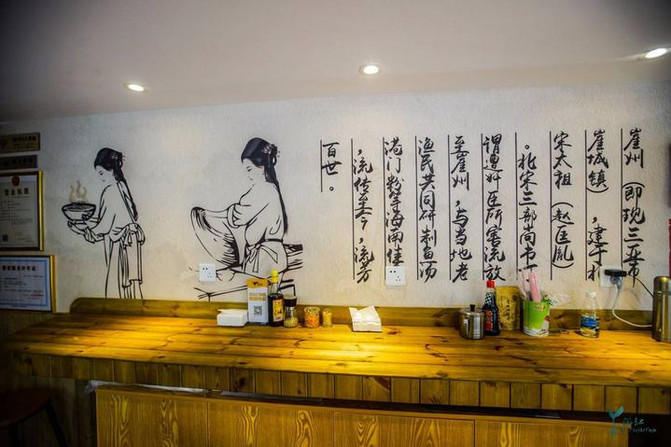 崖州（即现三亚市
崖城镇），建于
宋太祖（赵匡胤）
。北宋三部尚书
谓遭奸臣所害流放
至崖州，与当地老
渔民共同研制鱼汤
港门粉等海南佳
，流传至今，流芳
百世。